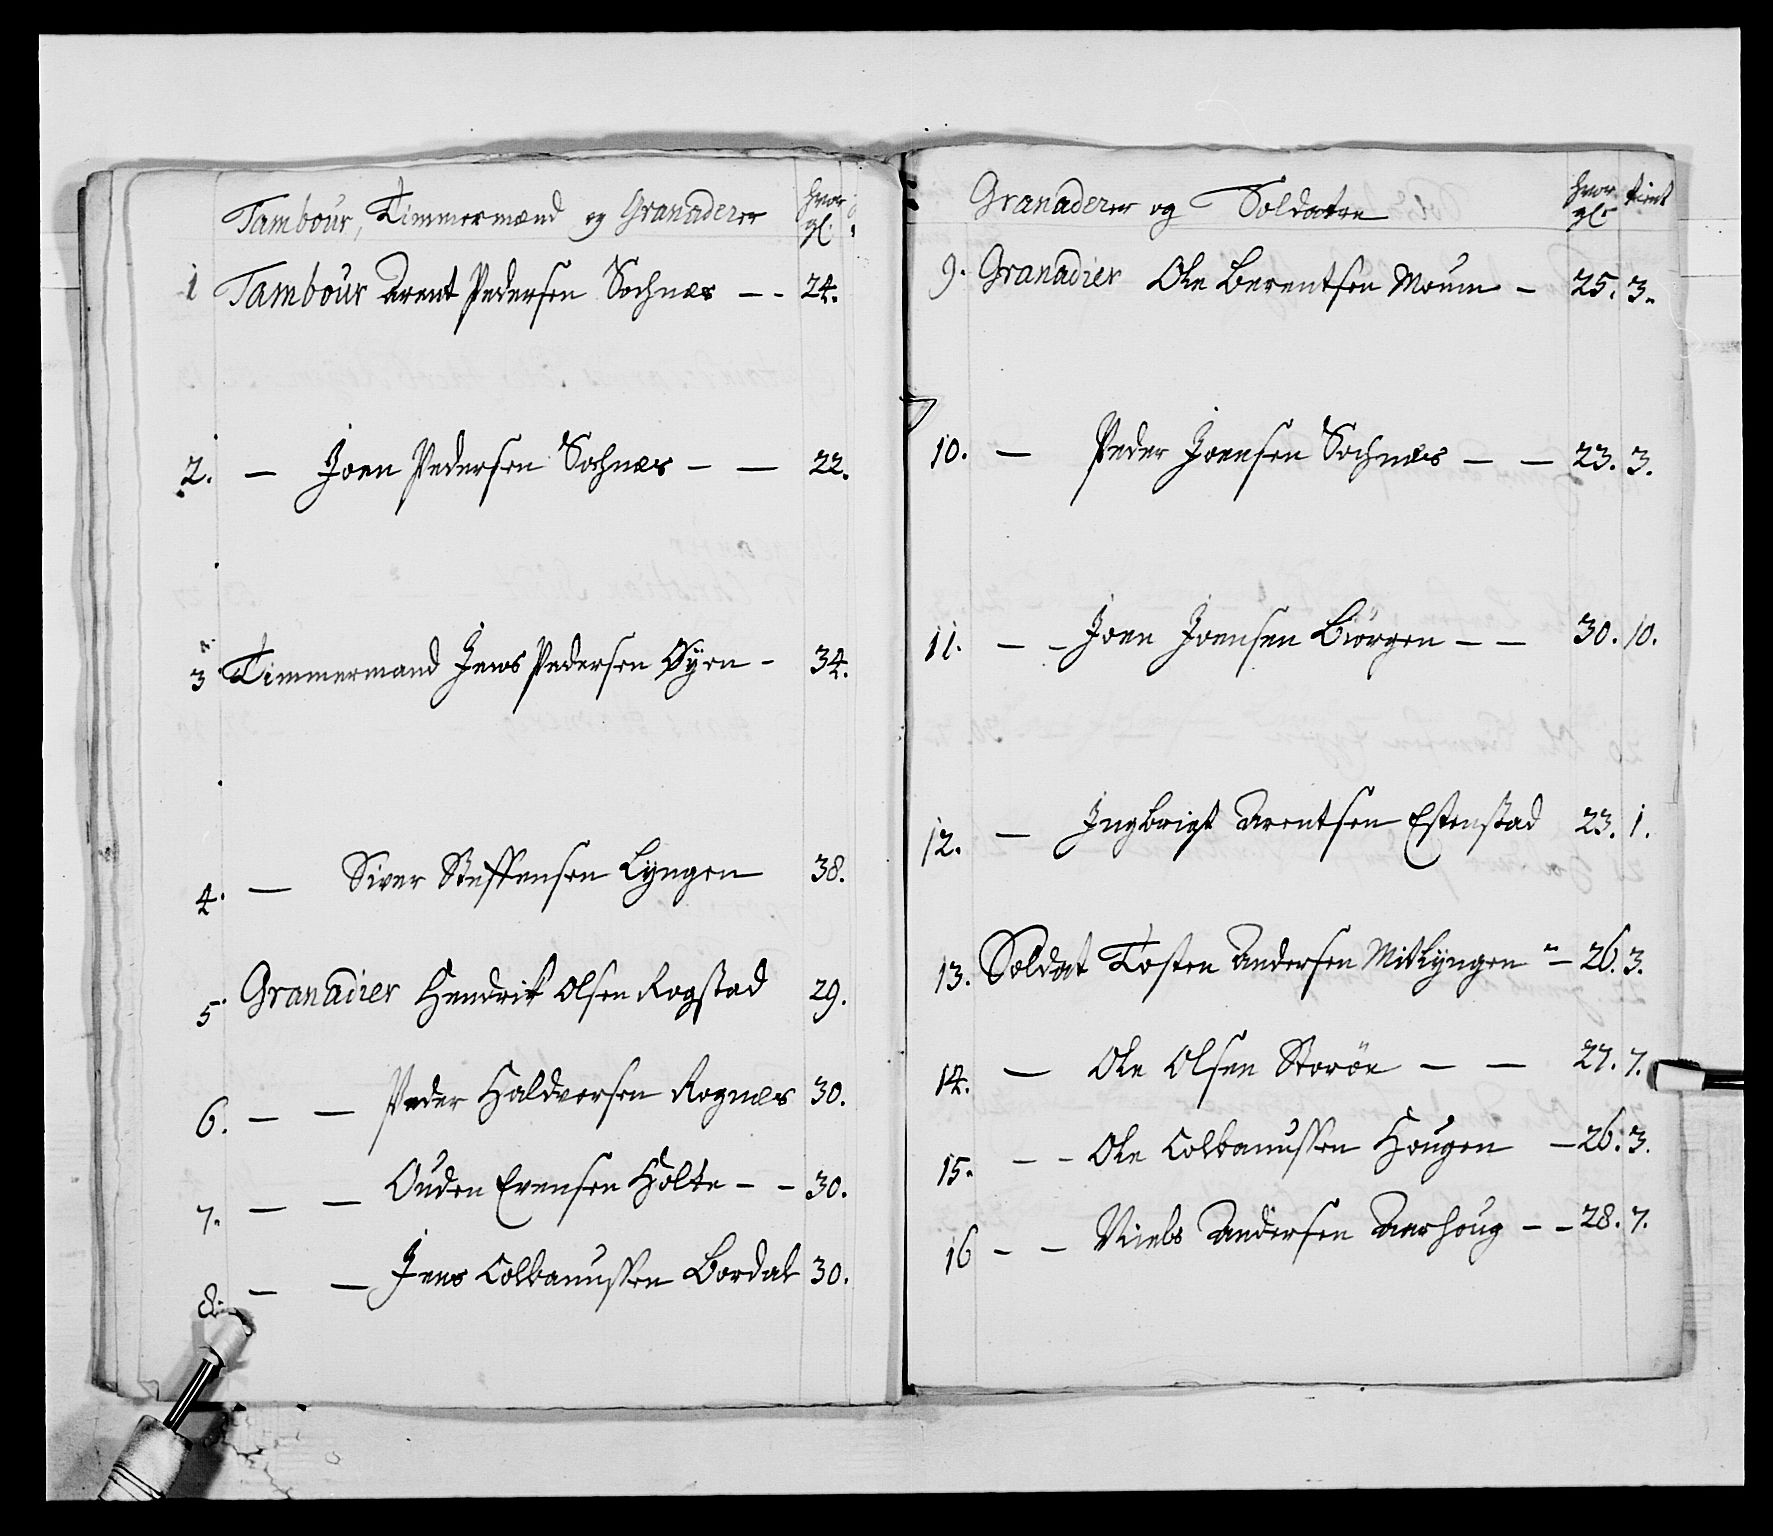 Tambour, Timmermænd og Granaderer hvor gl.
1 Tambour Arent Pedersen Sochnæs - - 24.
2. - Joen Pedersen Sochnæs - - 22.
3 Timmermand Jens Pedersen Øyen - 34.
4. - Siver Steffensen Lyngen 38.
5 Granadier Hendrik Olsen Rogstad 29.
6. - - Peder Haldversen Rognæs 30.
7. - - Ouden Evensen Holte - - 30.
8. - - Jens Colbanussen Bordal 30.
Granaderer og Soldater hvor gl. tient
9. Granadier Ole Berentsen Moum - 25. 3.
10. - Peder Joensen Sochnæs - - 23. 3.
11. - - Joen Joensen Biörgen - - 30. 10.
12. - Ingbrigt Arentsen Estenstad 23. 1.
13. Soldat Tosten Andersen Mitlyngen - 26. 3.
14. - Ole Olsen Storöe - - 27. 7.
15. - - Ole Colbanussen Hougen - 26. 3.
16 - - Niels Andersen Aarhoug - - 28. 7.